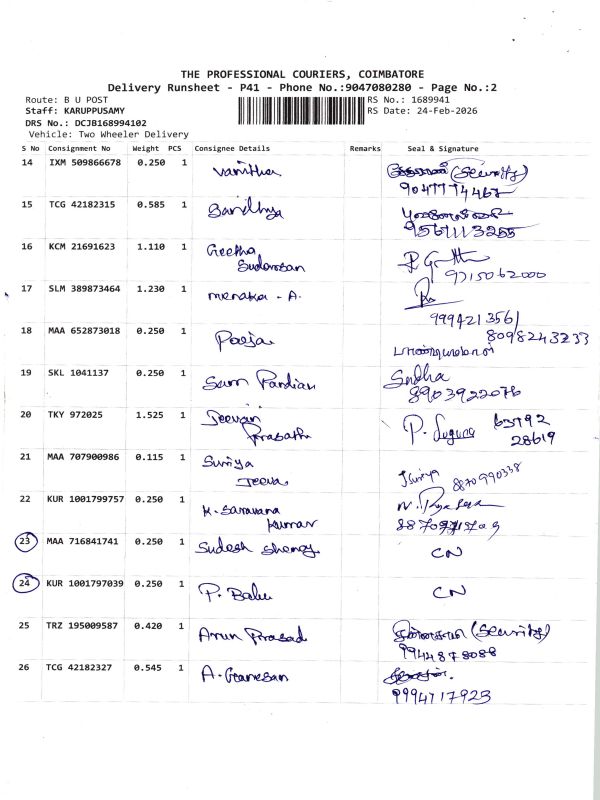 THE PROFESSIONAL COURIERS, COIMBATORE
Delivery Runsheet - P41 - Phone No.:9047080280 - Page No.:2
Route: B U POST
Staff: KARUPPUSAMY
DRS No.: DCJB168994102
Vehicle: Two Wheeler Delivery
RS No.: 1689941
RS Date: 24-Feb-2026
S No Consignment No Weight PCS Consignee Details Remarks Seal & Signature
14 IXM 509866678 0.250 1 Vanitha (Security)
9047774467
15 TCG 42182315 0.585 1 Sandhya
9567113255
16 KCM 21691623 1.110 1 Geetha
Sudarosan
9715062000
17 SLM 389873464 1.230 1 menaka - A.
9994213561
18 MAA 652873018 0.250 1 Pooja
8098243233
19 SKL 1041137 0.250 1 Sam Pandian Sudha
8903922076
20 TKY 972025 1.525 1 Jeevan
Prasath
P. Suguna 63792
28619
21 MAA 707900986 0.115 1 Suriya
Jeeva
Jsuriya 8870990338
22 KUR 1001799757 0.250 1 K. Saravana
Kumar
23 MAA 716841741 0.250 1 Sudesh Shenoy CN
24 KUR 1001797039 0.250 1 P. Babu CN
25 TRZ 195009587 0.420 1 Arun Prasad (Security)
9944878088
26 TCG 42182327 0.545 1 A. Ganesan
9994717923